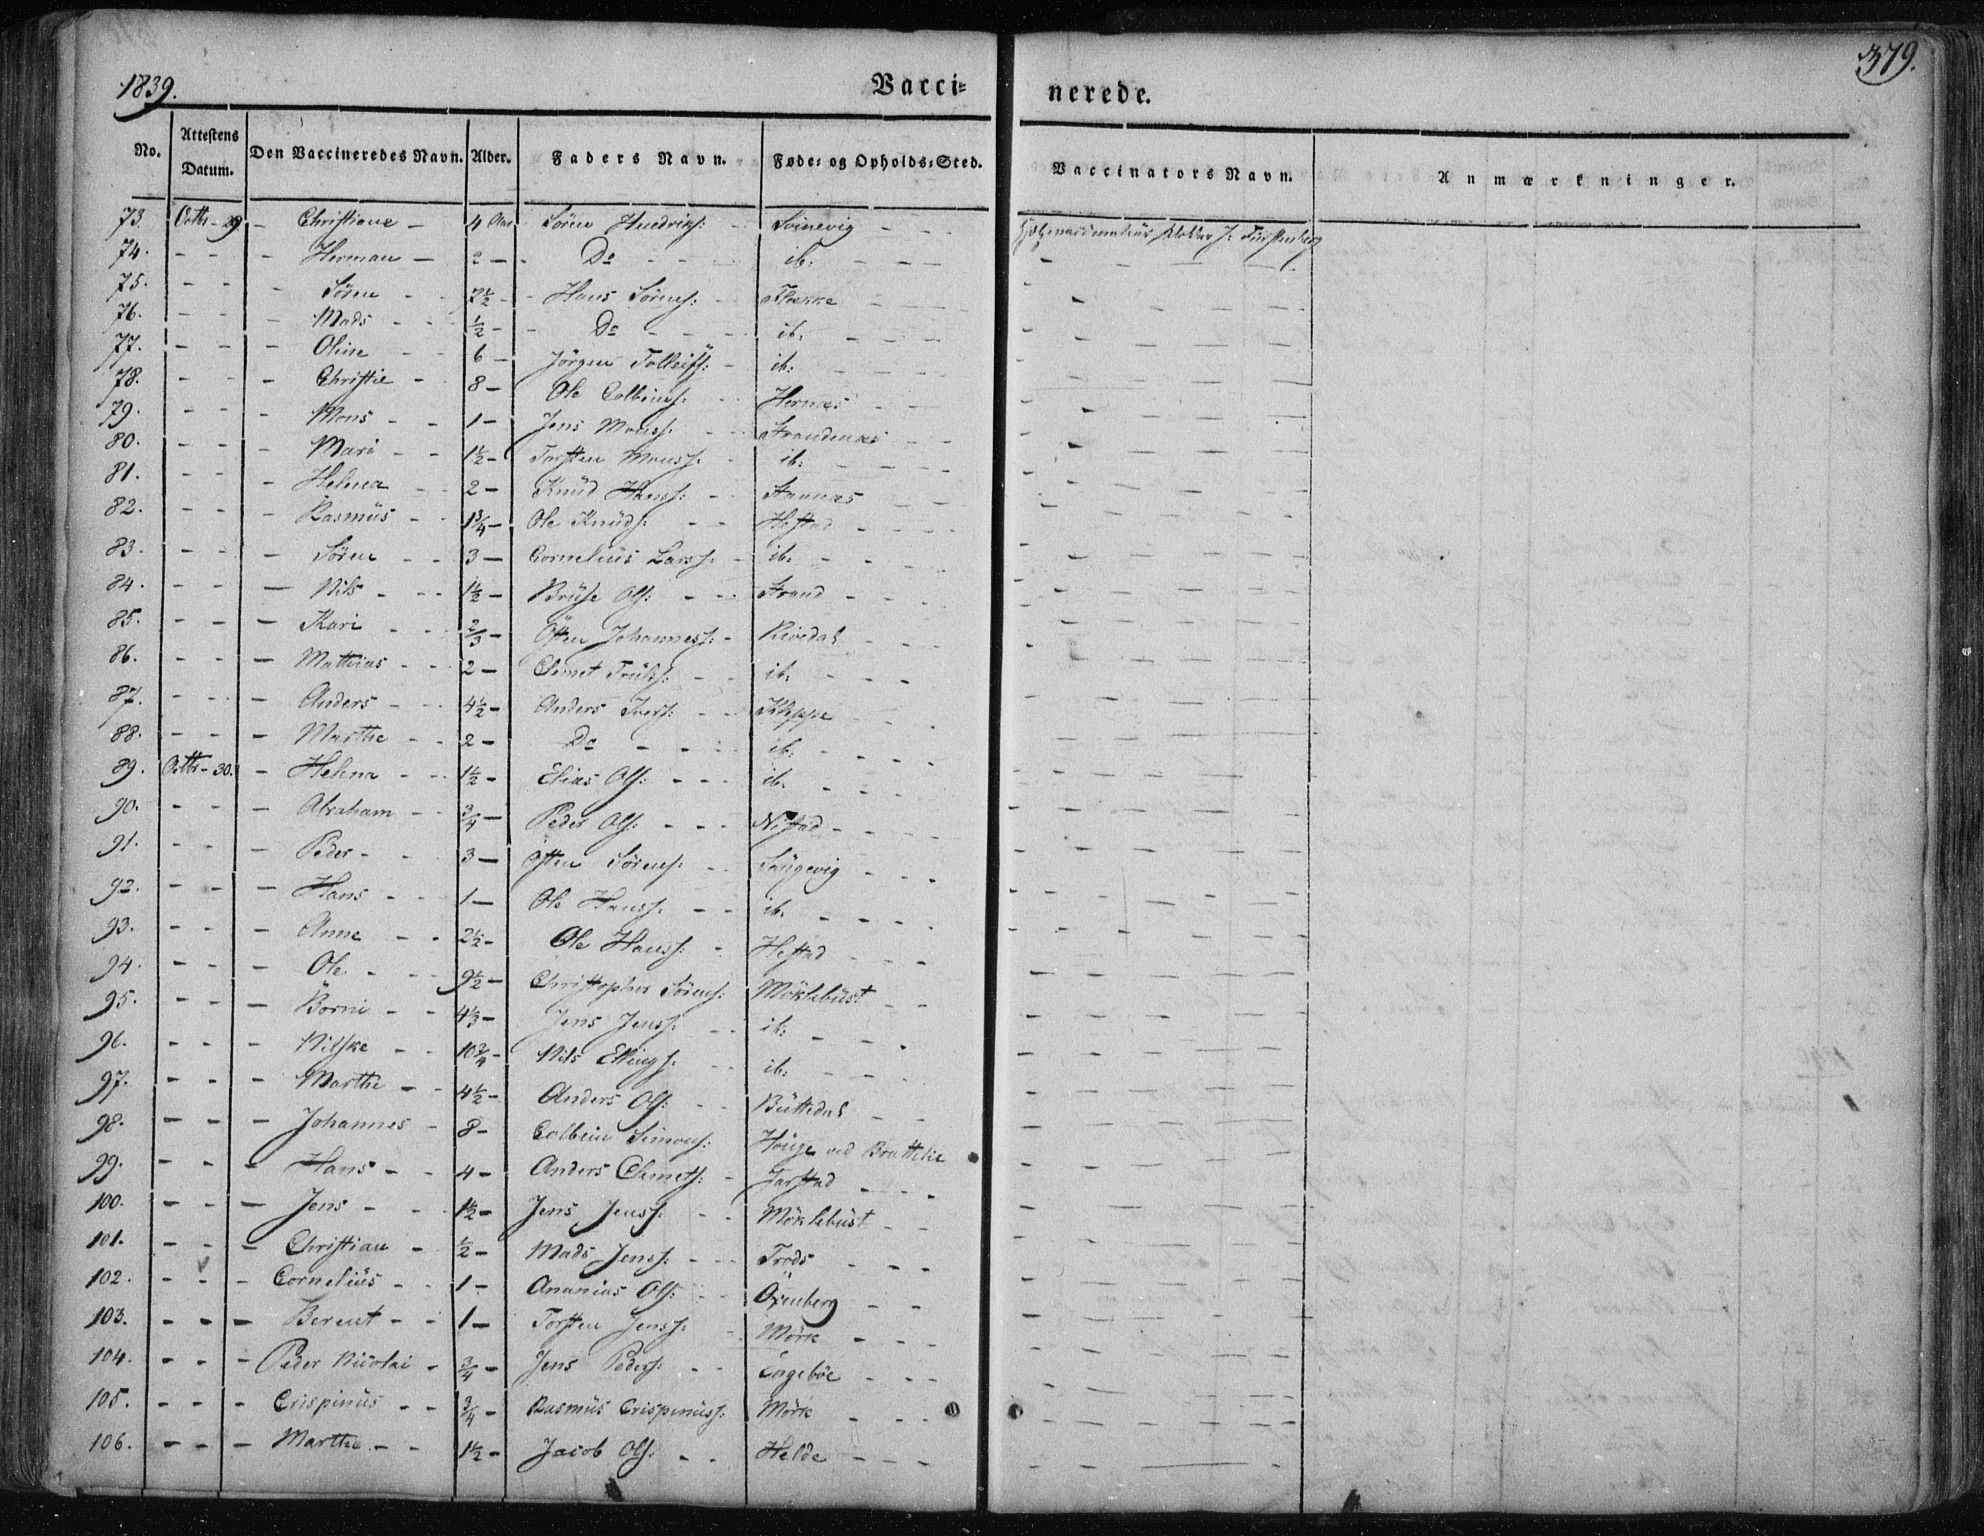 1839.
Vacci=
nerede.
379.
No. Attestens Datum. Den Vaccineredes Navn. Alder. Faders Navn. Føde= og Opholds=Sted. Vaccinators Navn. Anmærkninger.
73. Octbr - 29 - Christiane - 4 Aar Sören Hendriks: Svinevig - - -
74. - - - Herman - 2 - - Do - - - ib: - - -
75. - - - Sören - - 7½ - - Hans Sörens: - Flekke - - -
76. - - - Mads - - ½ - - Do - - - ib: - - -
77. - - - Oline - - 6 - Jörgen Tolleifs: - ib: - - -
78. - - - Christie - 8 - Ole Colbeins: - Hernæs - -
79. - - - Mons - - 1 - Jens Monss: - - Strandenæs - -
80. - - - Mari - - 1½ - Torsten Monss: - ib: - - -
81. - - - Helena - - 2 - Knüd Hanss: - - Stavnæs - - -
82. - - - Rasmüs - - 1¾ - Ole Knüds: - - Hestad - - -
83. - - - Sören - - 3 - Cornelius Larss: - ib. - - -
84. - - - Nils - - - 1½ - Brüse Ols: - - - Strand - - -
85. - - - Kari - - - 2/3 - Östen Johanness: - Rivedal - - -
86. - - - Mathias - - - 2 - Clemet Trüls: - - ib. - - -
87. - - - Anders - - - 4½ - Anders Ivers: - - Kleppe - - -
88. - - - Marthe - - 2 - Do - - - ib. - - -
89. Octbr - 30. - Helena - - - 1½ - Elias Ols: - - - ib. - - -
90. - - - Abraham - - ¾ - Peder Ols: - - - Nistad - - - -
91. - - - Peder - - - 3 - Östen Sörens: - - Saugevig - - -
92. - - - Hans - - - 1 - Ole Hanss: - - ib. - - -
93. - - - Anne - - 2½ - Ole Hanss: - Hestad - - -
94. - - - Ole - - - 9½ - Christopher Sörens: Möklebüst - -
95. - - - Börni - - 4⅓ - Jens Jenss: - - ib: - - -
96. - - - Nilske - - 10¾ - Nils Ellings: - ib: - - -
97. - - - Marthe - - 4½ - Anders Ols: - - Büttedal - -
98. - - - Johannes - 8 - Colbein Simons: Houge ved Brattelie
99. - - - Hans - - 4 - Anders Clemets: - Jarstad - - -
100. - - - Jens - - - 1½ - Jens Jenss: - - Möklebüst - -
101. - - - Christian - ½ - Mads Jenss: - - - - - -
102. - - - Cornelius - - 1 - Ananias Ols: - - Öxenberg - -
103. - - - Berent - - 1 - Torsten Jenss: - Mörk - - -
104. - - - Peder Nicolai - ¾ - Jens Peders: - - Engeböe - - -
105. - - - Crispinüs - - ¾ - Rasmüs Crispinüss: Mörk - - -
106. - - - Marthe - - 1½ - Jacob Ols: - - Helde - - -